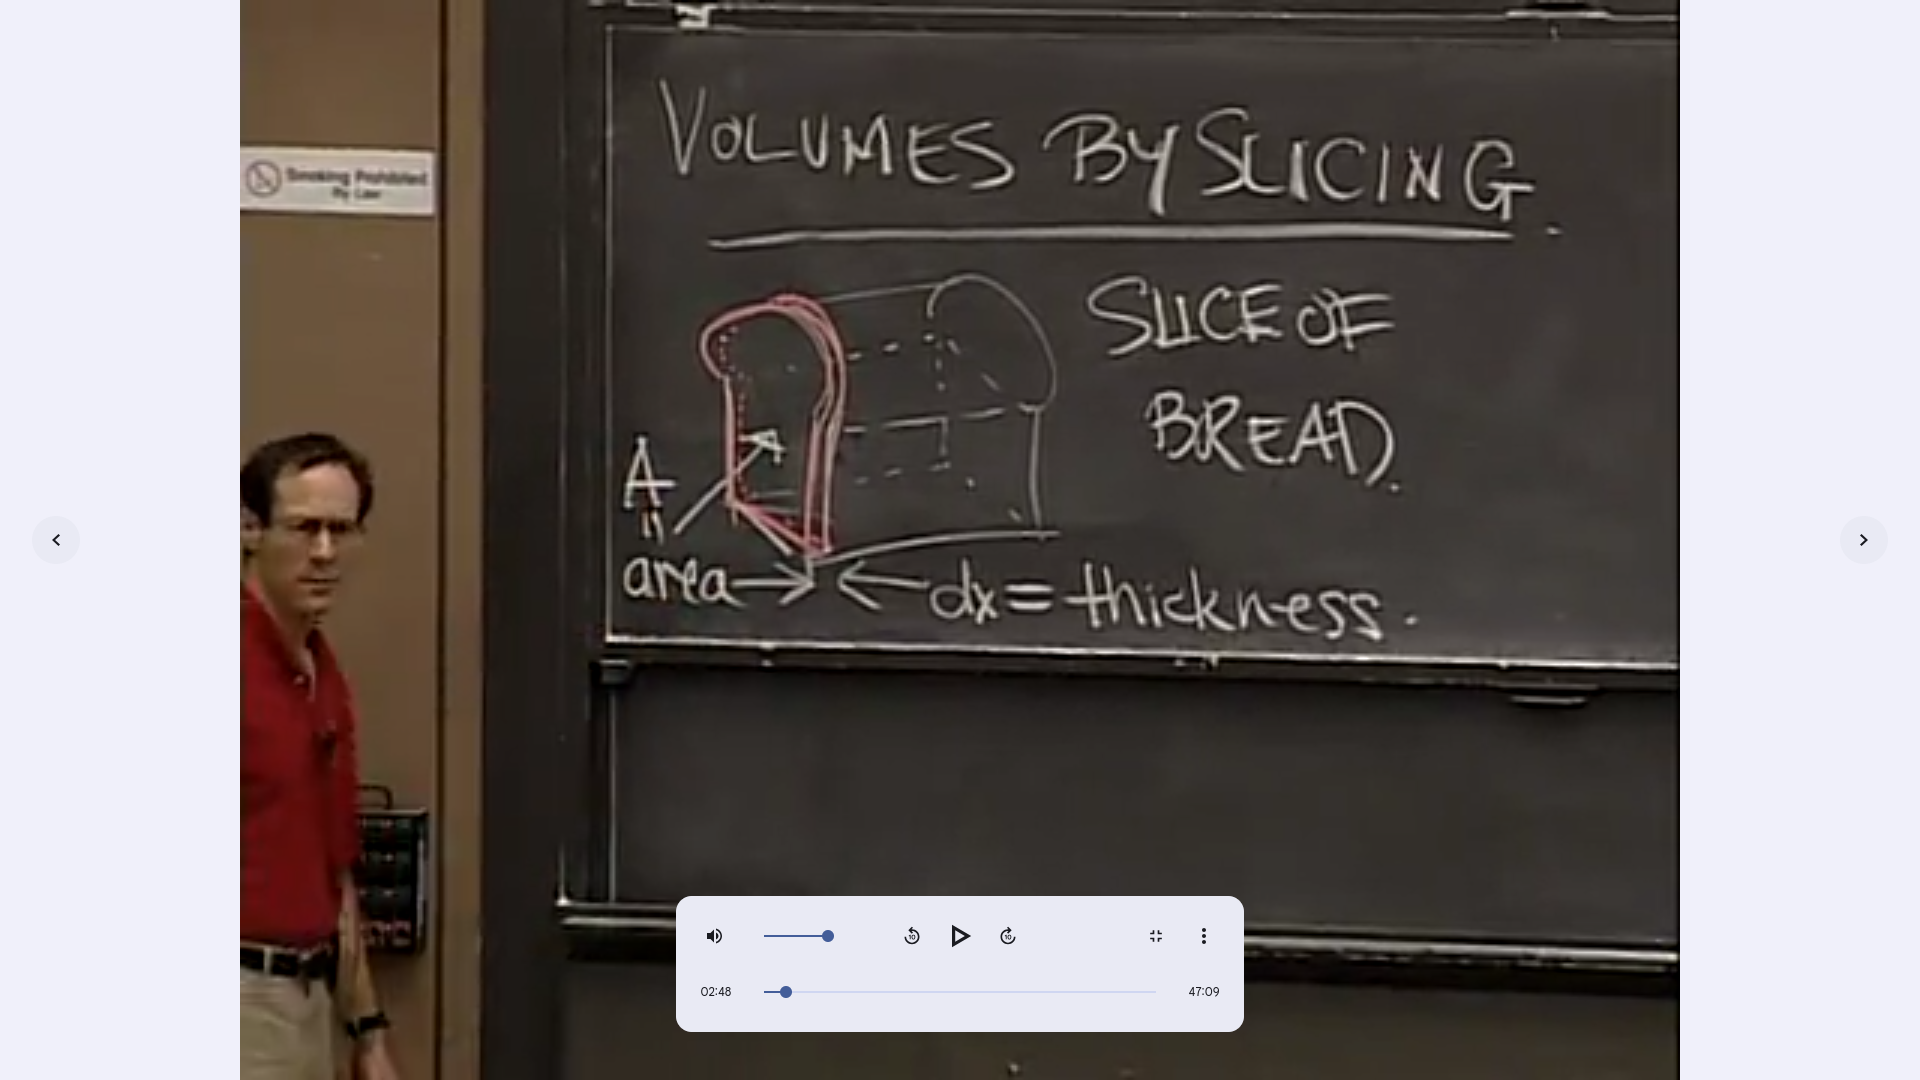 Smoking Prohibited
By Law
VOLUMES BY SLICING
SLICE OF
BREAD.
A
"
area
dx = thickness.
10
10
02:48
47:09